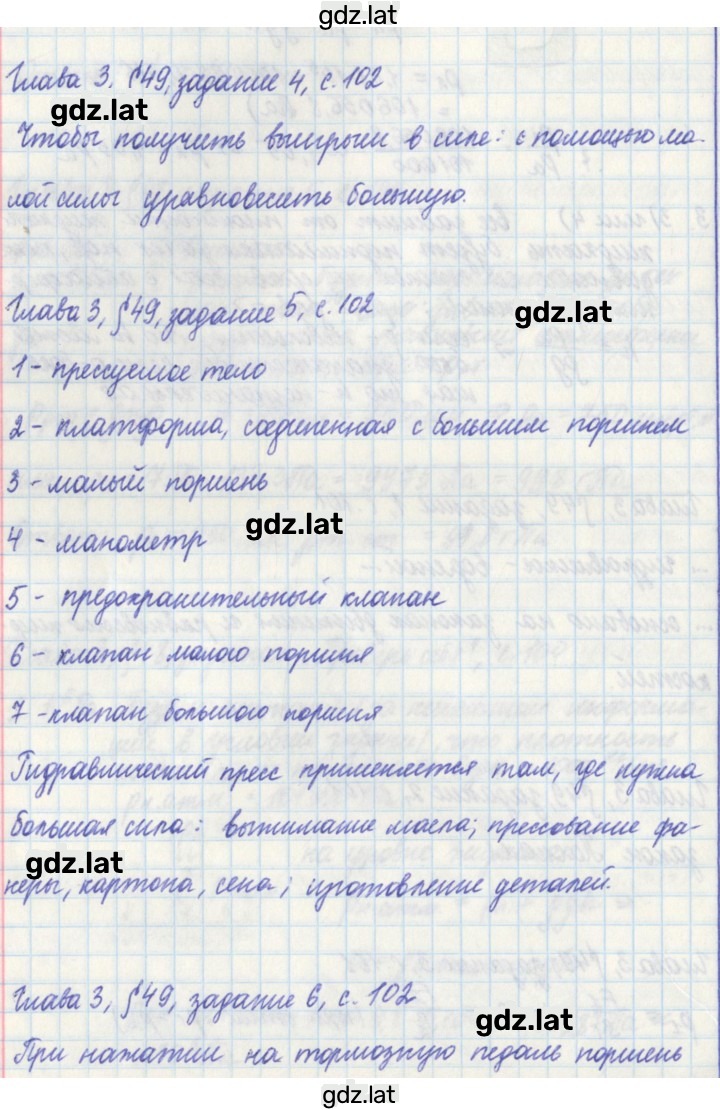 gdz.lat
Глава 3, §49, задание 4, с. 102
gdz.lat
Чтобы получить выигрыш в силе: с помощью ма-
лой силы уравновесить большую.
Глава 3, §49, задание 5, с. 102
gdz.lat
1 - прессуемое тело
2 - платформа, соединенная с большим поршнем
3 - малый поршень
gdz.lat
4 - манометр
5 - предохранительный клапан
6 - клапан малого поршня
7 - клапан большого поршня
Гидравлический пресс применяется там, где нужна
большая сила: выжимание масла; прессование фа-
gdz.lat
неры, картона, сена; изготовление деталей.
Глава 3, §49, задание 6, с. 102
gdz.lat
При нажатии на тормозную педаль поршень
gdz.lat